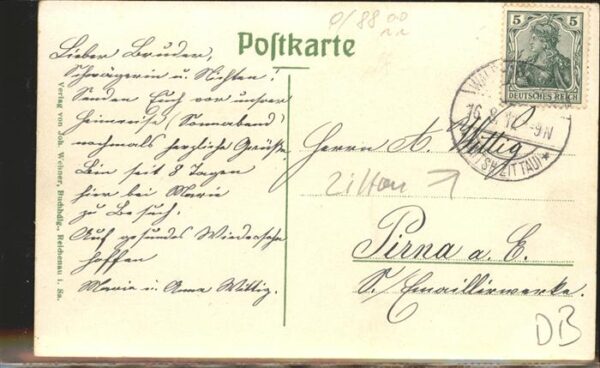 0/88 00
Postkarte
5 5
DEUTSCHES REICH
16.8.1
-9N
ZITTAU
Lieber Bruder,
Schwägerin u. Nichten!
Senden Euch vor unsrer
Heimreise (Sonnabend)
nochmals herzliche Grüße.
Bin seit 8 Tagen
hier bei Marie
zu Besuch.
Auf gesundes Wiedersehn
hoffen
Marie u. Anna Wittig.
Verlag von Joh. Wehner, Buchhdlg., Reichenau i. Sa.
Herrn A. Wittig
Zittau
Pirna a. E.
S. Emaillirwerke.
DB